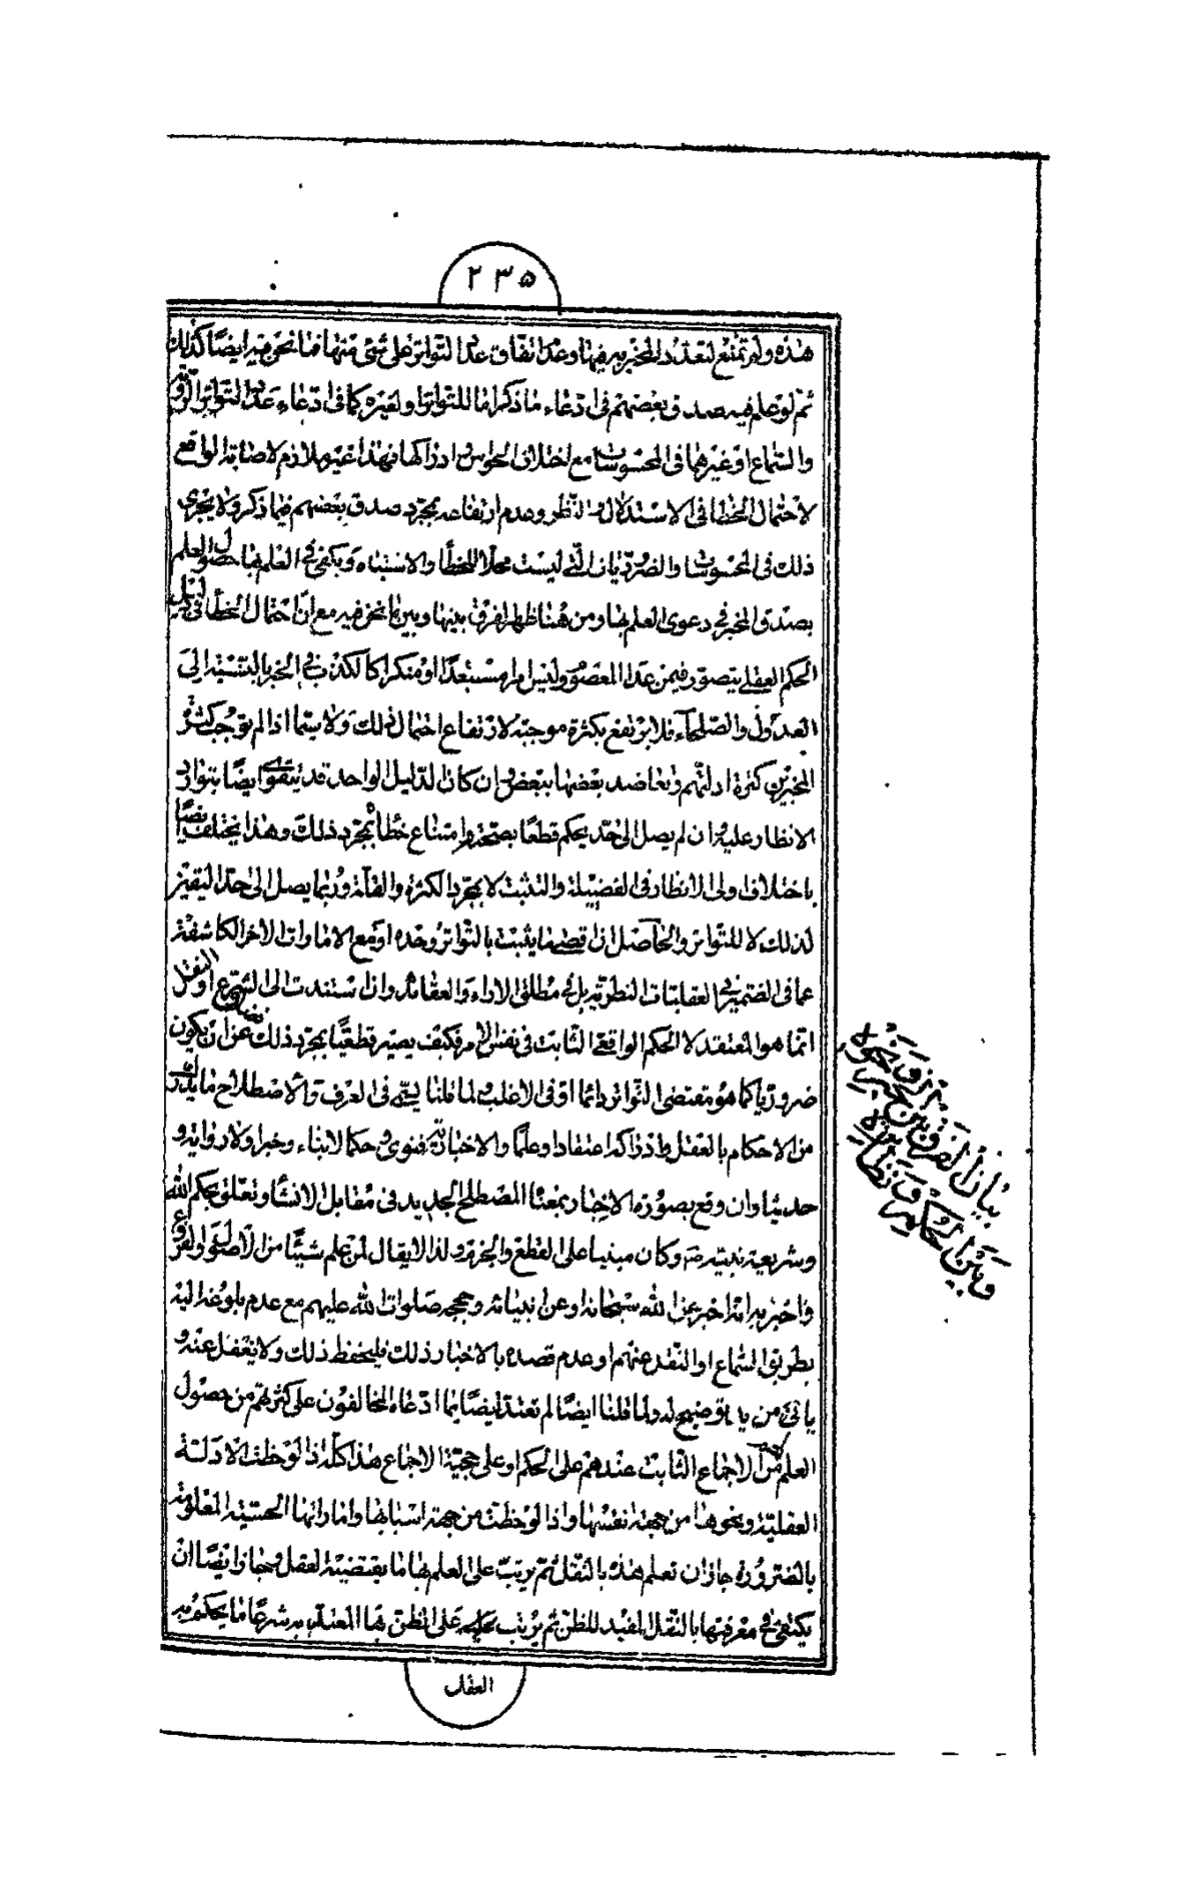 ٢٣٥
هذه ولم تمنع لتعدد المخبرين فيها وعدم اتفاق عدد التواتر على شئ منها فما نحن فيه ايضًا كذلك
ثم لو علم فيه صدق بعضهم فى ادعاء ما ذكر اما للتواتر او لغيره كما فى ادعاء عدد التواتر الرؤية
والسماع او غيرهما فى المحسوسات مع اختلاف الحواس فى ادراكها فهذا غير ملازم لاصابة الواقع
لاحتمال الخطا فى الاستدلال والنظر وعدم ارتفاعه بمجرد صدق بعضهم فيما ذكر ولا يجرى
ذلك فى المحسوسات والضروريات التى ليست محلا للخطأ والاشتباه ويكفى فى العلم بها حصول العلم
بصدق المخبر فى دعوى العلم بها ومن هنا ظهر الفرق بينها وبين ما نحن فيه مع ان احتمال الخطأ فى دليل
الحكم العقلى يتصور فيمن عدا المعصوم وليس امرا مستبعدًا او منكرا كالكذب فى الخبر بالنسبة الى
العدول والصلحاء فلا يرتفع بكثرة موجبة لارتفاع احتمال ذلك ولا سيما اذا لم يوجب كثرة
المخبرين كثرة ادلتهم وتعاضد بعضها ببعض وان كان الدليل الواحد قد يتقوى ايضًا بتوارد
الانظار عليه وان لم يصل الى حد يحكم قطعًا بصحته وامتناع خطأه بمجرد ذلك وهذا يختلف ايضًا
باختلاف اولى الانظار فى الفضيلة والتثبت لا بمجرد الكثرة والقلة وربما يصل الى حد اليقين
لذلك لا للتواتر والحاصل ان قصى ما يثبت بالتواتر وحده او مع الامارات الاخر الكاشفة
عما فى الضمير فى العقليات النظرية بل فى مطلق الاراء والعقائد وان استندت الى الشرع او النقل
انما هو المعتقد لا الحكم الواقعى الثابت فى نفس الامر فكيف يصير قطعيًا بمجرد ذلك فضلا عن ان يكون
ضروريا كما هو مقتضى التواتر دائما او فى الاغلب ولما قلنا يسمى فى العرف والاصطلاح ما يدرك
من الاحكام بالعقل وادراكه اعتقادا وعلمًا والاخبار به فتوى وحكما لا نباء وخبرا ولا رواية و
حديثا وان وقع بصورة الاخبار بمعناه المصطلح الجديد فى مقابل الانشاء وتعلق بحكم الله
وشريعة نبيه ص وكان مبنيا على القطع والجزم ولذا لا يقال لمن علم شيئًا من الاصول والفروع
واخبر به انه اخبر عن الله سبحانه او عن انبيائه وحججه صلوات الله عليهم مع عدم بلوغه اليه
بطريق السماع او النقل عنهم او عدم قصده بالاخبار ذلك فليحفظ ذلك ولا تغفل عنه و
يأتى من يد توضيح له ولما قلنا ايضًا لم نعتد ايضًا بما ادعاه المخالفون على كثرتهم من حصول
العلم من الاجماع الثابت عندهم على الحكم او على حجية الاجماع هذا كله اذا لوحظت الادلة
العقلية ونحوها من جهة نفسها واذا لوحظت من جهة اسبابها واماراتها الحسية المعلومة
بالضرورة جاز ان تعلم هذه بالنقل ثم يرتب على العلم بها ما يقتضيه العقل وجاز ايضًا ان
يكتفى فى معرفتها بالنقل المفيد للظن ثم يرتب على الظن بها المعتد به شرعًا ما يحكم به
العقل
بيان الفرق بين الخبر ونحوه
وبين الحكم ونظايره